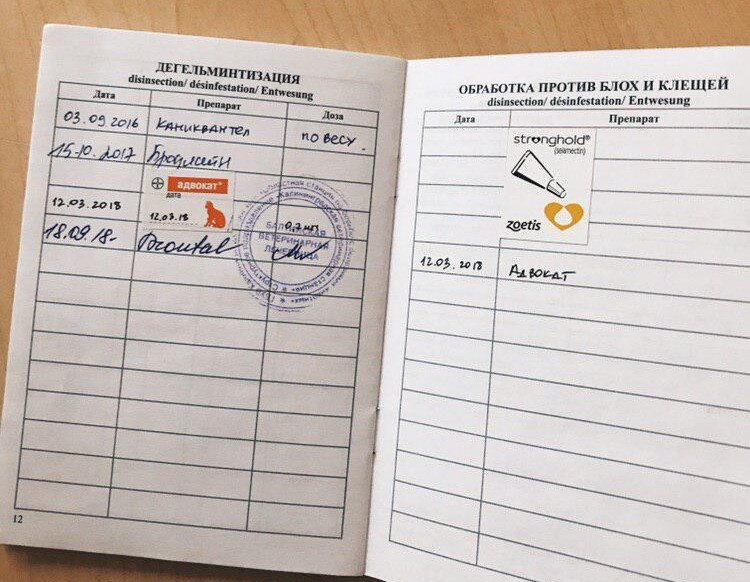 ДЕГЕЛЬМИНТИЗАЦИЯ
disinsection/ désinfestation/ Entwesung
Дата Препарат Доза
03.09.2016 Каниквантел по весу.
15.10.2017
адвокат®
дата
12.03.18
12.03.2018 0,7 мл
18.09.18- Drontal
БАЛТИЙСКАЯ
ВЕТЕРИНАРНАЯ
ЛЕЧЕБНИЦА
12
ОБРАБОТКА ПРОТИВ БЛОХ И КЛЕЩЕЙ
disinsection/ désinfestation/ Entwesung
Дата Препарат
stronghold®
(selamectin)
zoetis
12.03.2018 Адвокат